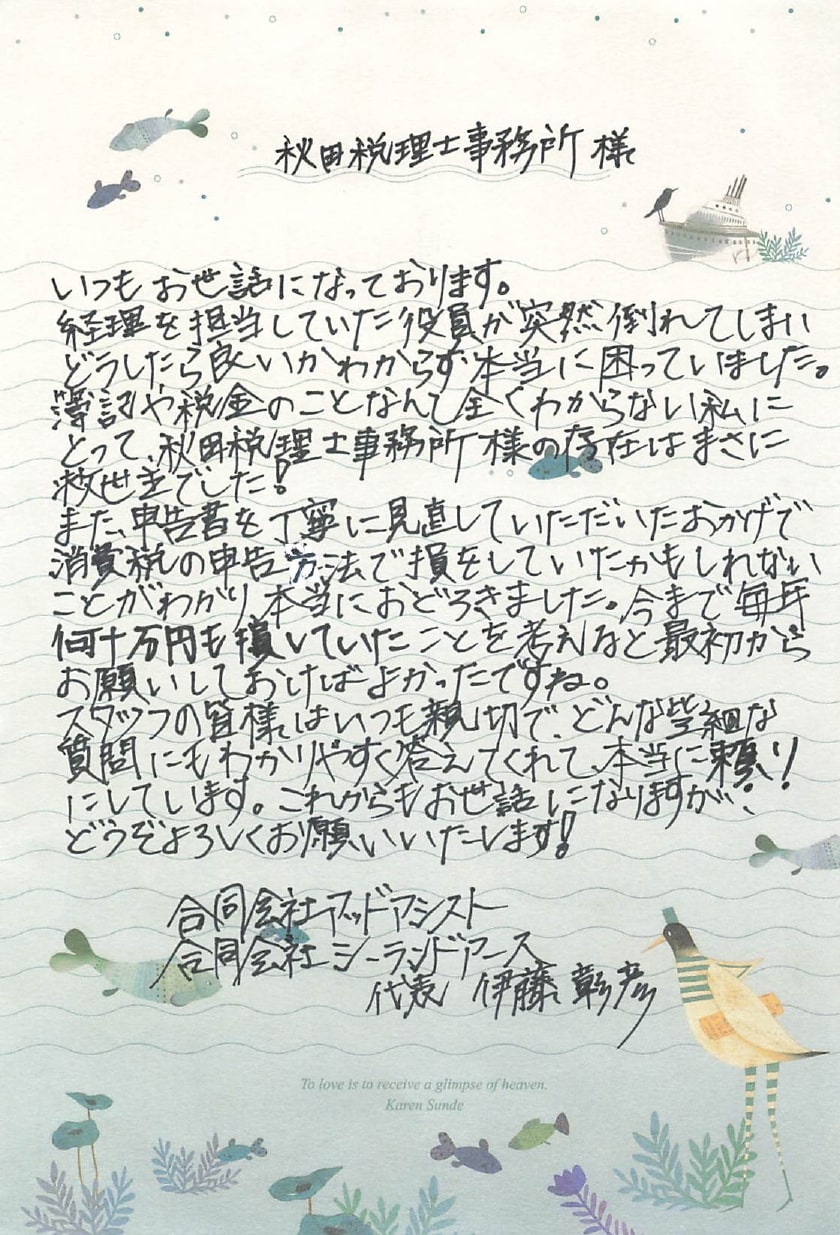 秋田税理士事務所 様
いつもお世話になっております。
経理を担当していた役員が突然倒れてしまい
どうしたら良いかわからず本当に困っていました。
簿記や税金のことなんて全くわからない私に
とって、秋田税理士事務所様の存在はまさに
救世主でした!
また、申告書を丁寧に見直していただいたおかげで
消費税の申告方法で損をしていたかもしれない
ことがわかり、本当におどろきました。今まで毎年
何十万円も損していたことを考えると最初から
お願いしておけばよかったですね。
スタッフの皆様はいつも親切で、どんな些細な
質問にもわかりやすく答えてくれて、本当に頼り
にしています。これからもお世話になりますが、
どうぞよろしくお願いいたします!
合同会社アッドアシスト
合同会社シーランドアース
代表 伊藤 彰彦
To love is to receive a glimpse of heaven.
Karen Sunde